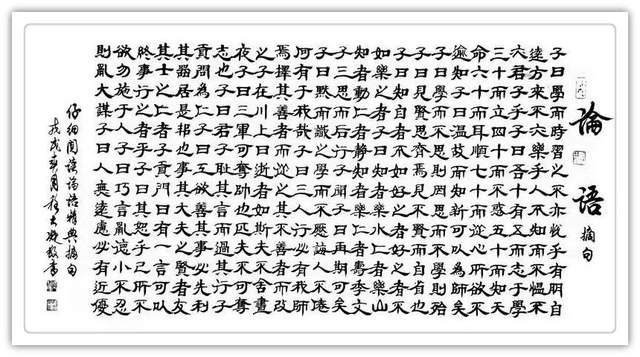 論語
摘句
子曰學而時習之不亦悅乎有朋自
遠方來不亦樂乎人不知而不慍不
亦君子乎子曰吾十有五而志于學
三十而立四十而不惑五十而知天
命六十而耳順七十而從心所欲不
逾矩子曰溫故而知新可以為師矣
子曰學而不思則罔思而不學則殆
子曰見賢思齊焉見不賢而自省也
子曰知之者不如好之者好之者不
如樂之者子曰知者樂水仁者樂山
知者動仁者靜知者樂仁者壽季文
子三思而後行子聞之曰再斯可矣
子曰默而識之學而不厭誨人不倦
何有于我哉子曰三人行必有我師
焉擇其善者而從之其不善者而改
之子在川上曰逝者如斯夫不舍晝
夜子曰三軍可奪帥也匹夫不可奪
志也子曰君子恥其言而過其行子
貢問為仁子曰工欲善其事必先利
其器居是邦也事其大夫之賢者友
其士之仁者子貢問曰有一言可以
終身行之者乎子曰其恕乎己所不
欲勿施于人子曰巧言亂德小不忍
則亂大謀子曰人無遠慮必有近憂
仔細閱讀論語經典摘句
戊戌月書